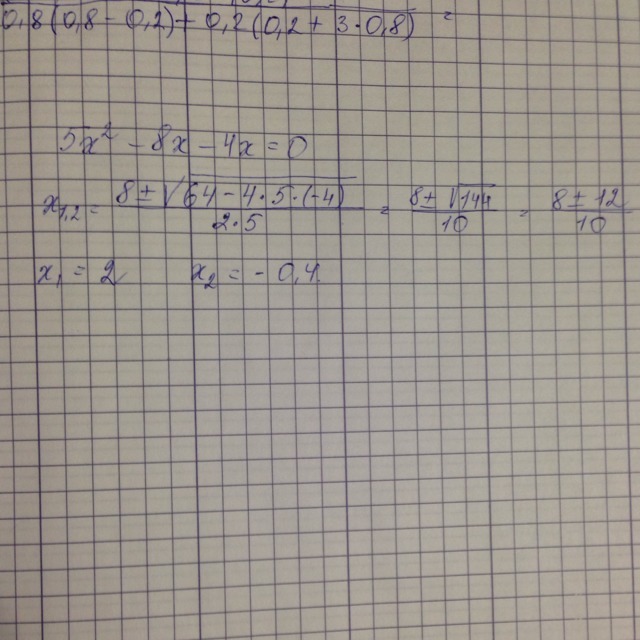 0,8(0,8-0,2)+0,2(0,2+3·0,8) =
5x² - 8x - 4x = 0
x₁,₂ = (8 ± √(64 - 4·5·(-4))) / (2·5) = (8 ± √144) / 10 = (8 ± 12) / 10
x₁ = 2 x₂ = - 0,4